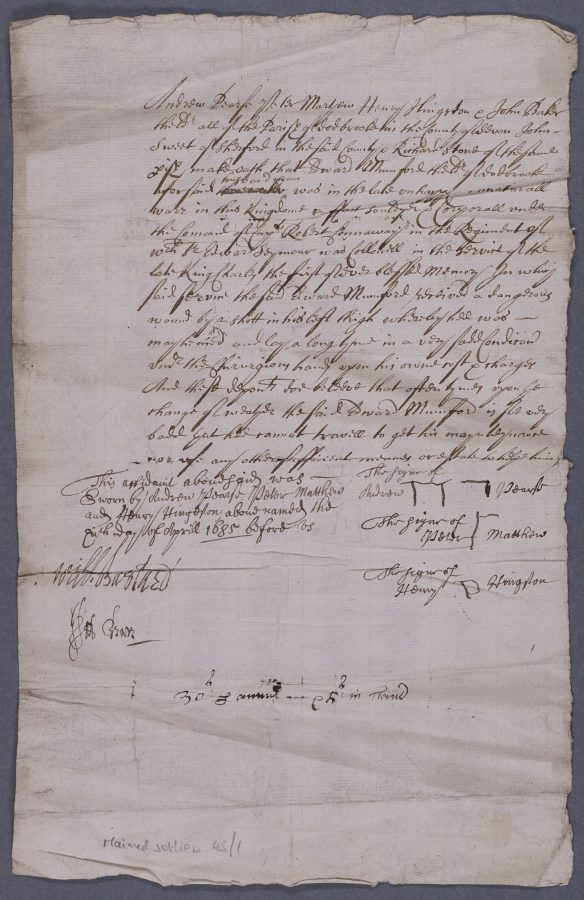 Andrew Pearse Peter Mathew Henry Hingston & John Baker
the eldr all of the Parish of Woodbrooke in the County of Devon John
Sweet of Sherford in the said County & Richard Stone of the same
psh make oath that Edward Mumford the eldr of Woodbrooke
aforesaid was in the late unhappy unnaturall
warr in this Kingdome a ffoot souldier & Corporall under
the Comand of Capt Robert Bonnaway in the Regiment of
wch Sr Edward Seymour was Collonell in the service of the
late King Charles the first of ever blessed Memory In which
said service the said Edward Mumford received a dangerous
wound by a shott in his left thigh whereby hee was
mayhemed and lay a long tyme in a very sadd Condicon
undr the Chirurgions hands upon his owne cost & charges
And these deponts doe beleeve that often tymes upon ye
change of weather the said Edward Mumford is soe very
badd yat hee cannot travill to get his mayntenance
nor use any other sufficient meanes or estate to help him
This affidavit abovesaid was
Sworn by Andrew Pearse Peter Matthew
and Henry Hingston above named the
day of Aprill 1685 before us
The signe of
Andrew Pearse
The signe of
Peter Matthew
The signe of
Henry Hingston
Will: Bastard
30s p annu &  in hand
Maimed soldiers 45/1